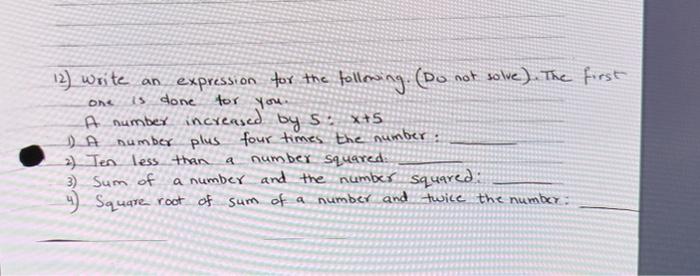 12) Write an expression for the following. (Do not solve). The first
one is done for you.
A number increased by 5: x+5
1) A number plus four times the number:
2) Ten less than a number squared:
3) Sum of a number and the number squared:
4) Square root of sum of a number and twice the number: